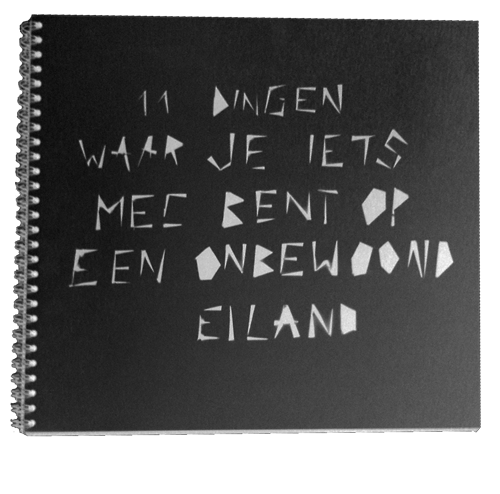 11 DINGEN
WAAR JE IETS
MEE BENT OP
EEN ONBEWOOND
EILAND